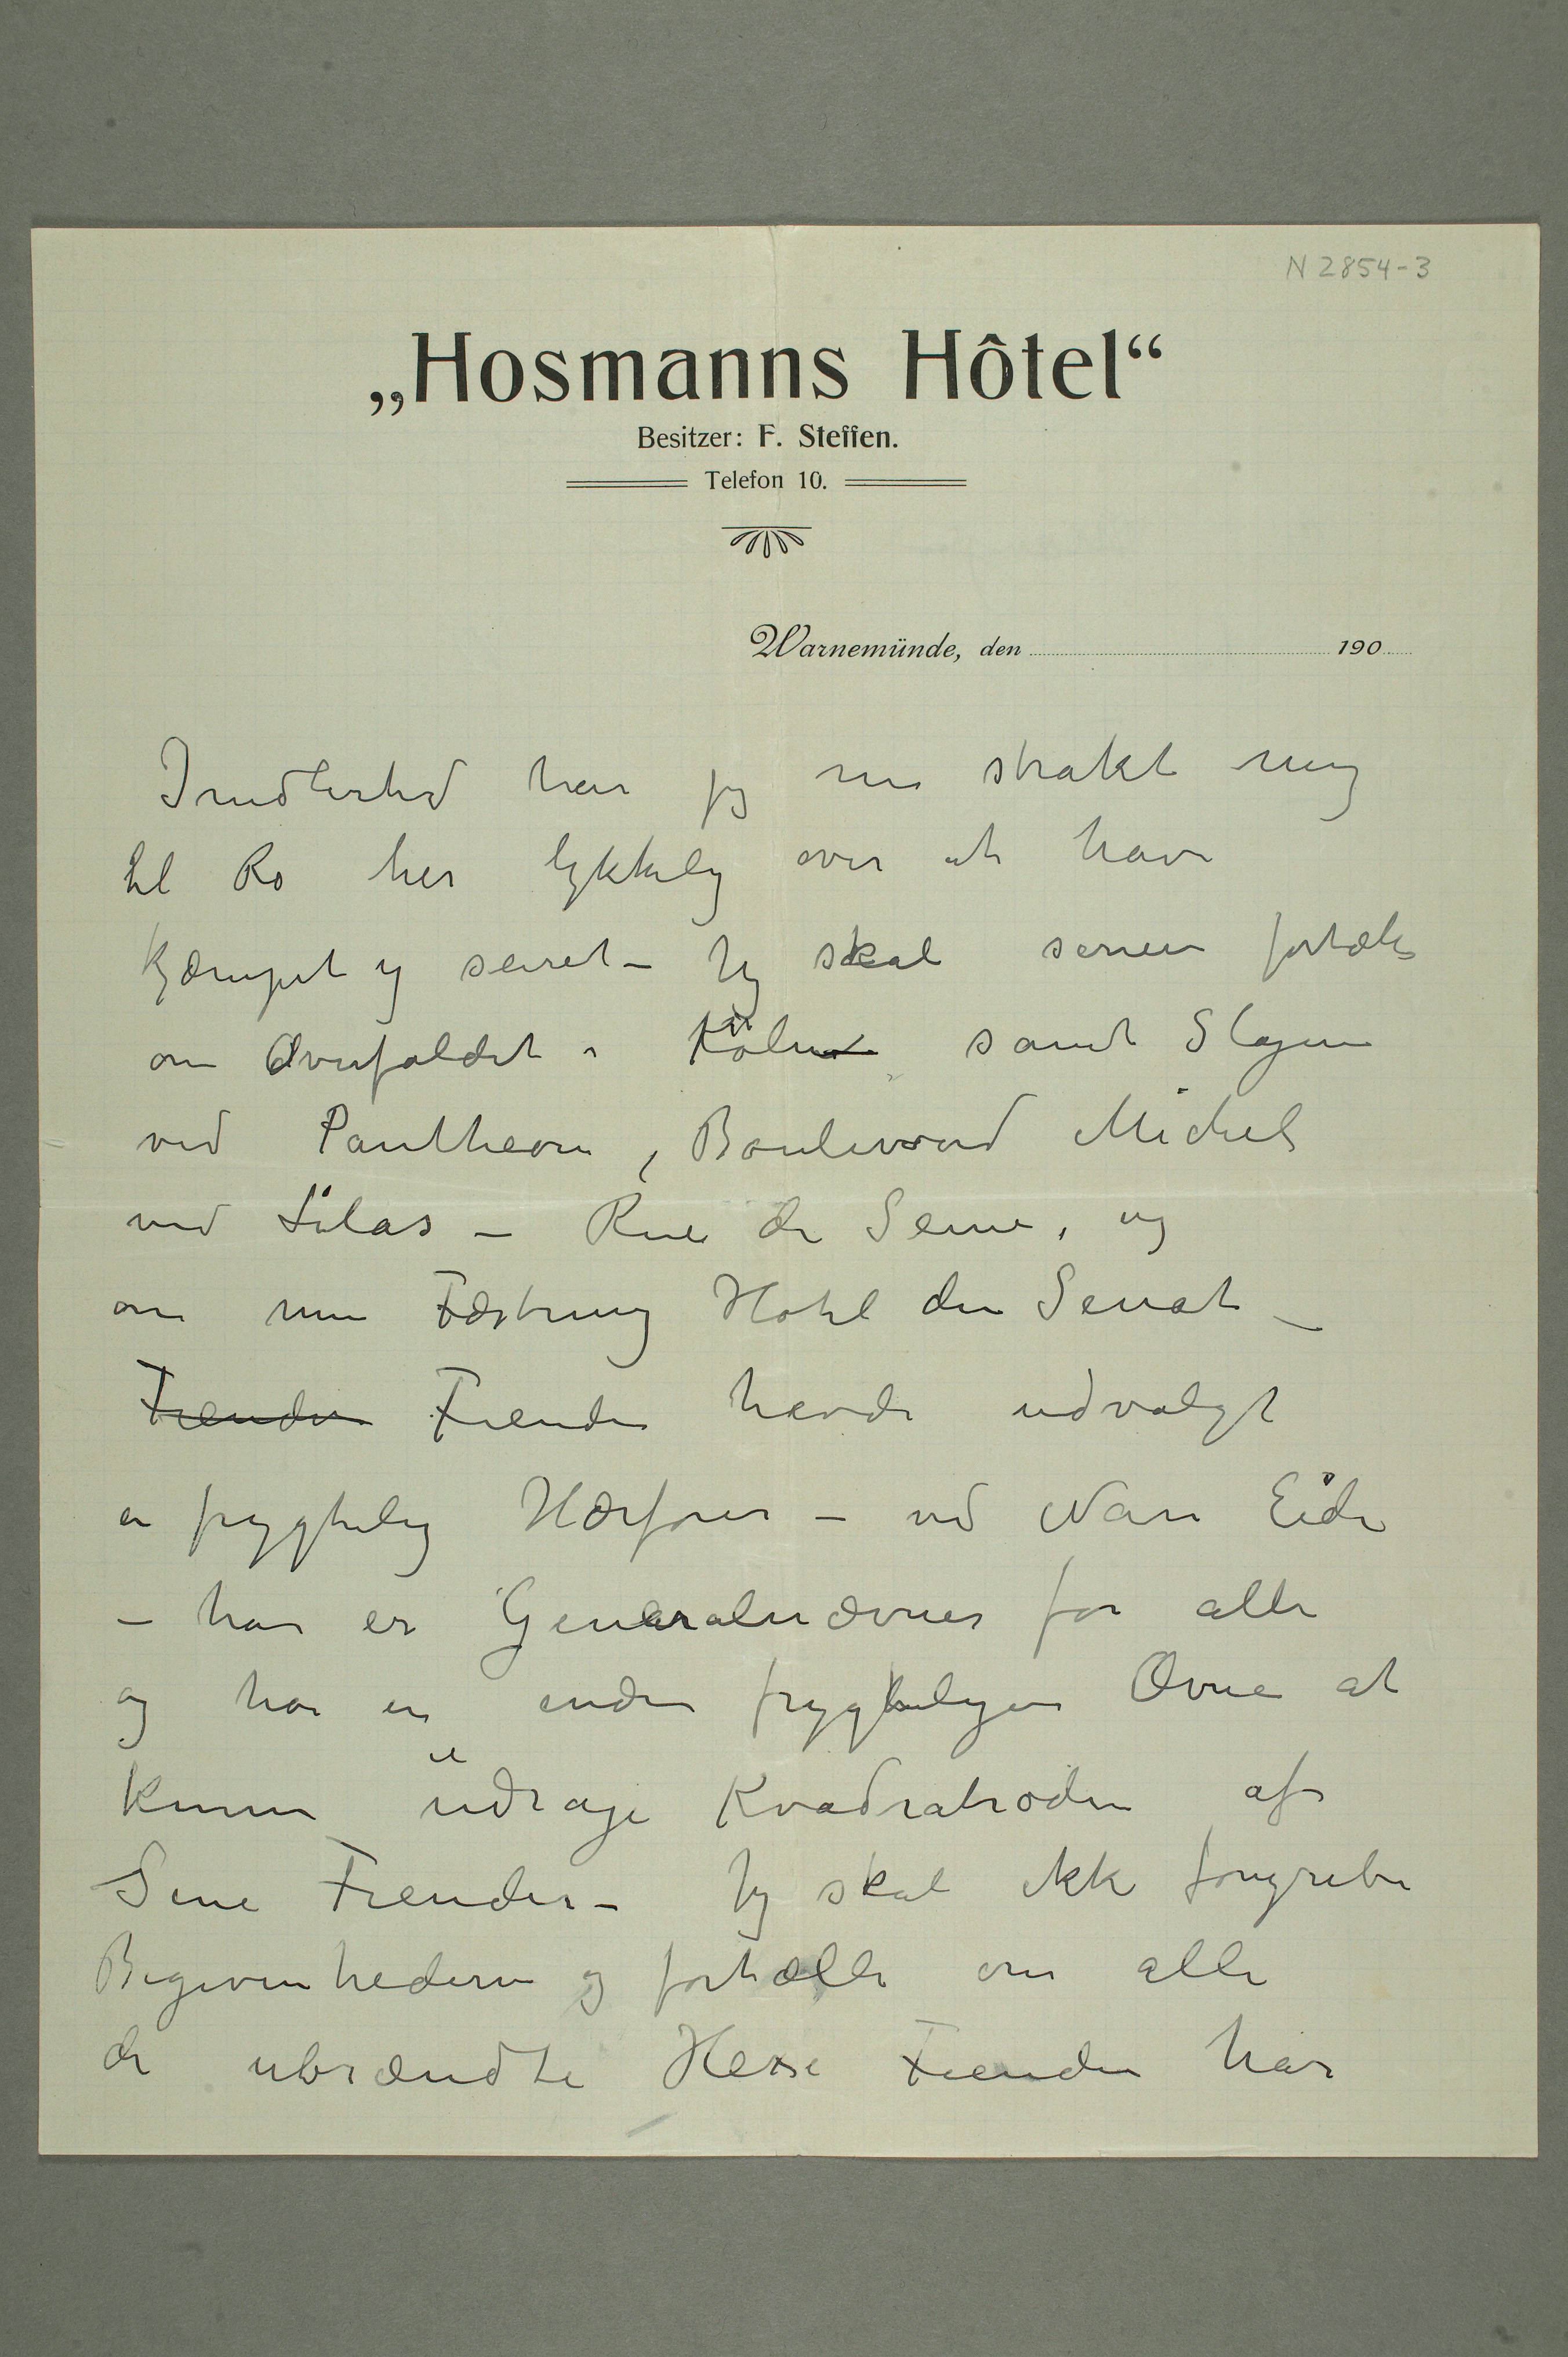 N 2854-3
„Hosmanns Hôtel“
Besitzer: F. Steffen.
Telefon 10.
Warnemünde, den 190
Imidlertid har jeg nu strakt mig
til Ro her lykkelig over at have
kjæmpet og seiret – Jeg skal senere fortælle
om Overfaldet i Köln samt Slagene
ved Pantheon, Boulevard Michel
ved Lilas – Rue de Seine, og
om min Fæstning Hotel du Senat –
Fienden Fienden havde udvalgt
en frygtelig Hærfører – ved Navn Eide
– han er Generalnævner for alle
og har en endnu frygteligere Ævne at
kunne udrage Kvadratroden af
Sine Fiender – Jeg skal ikke foregribe
Begivenhederne og fortælle om alle
de ubrændte Hexe Fienden har